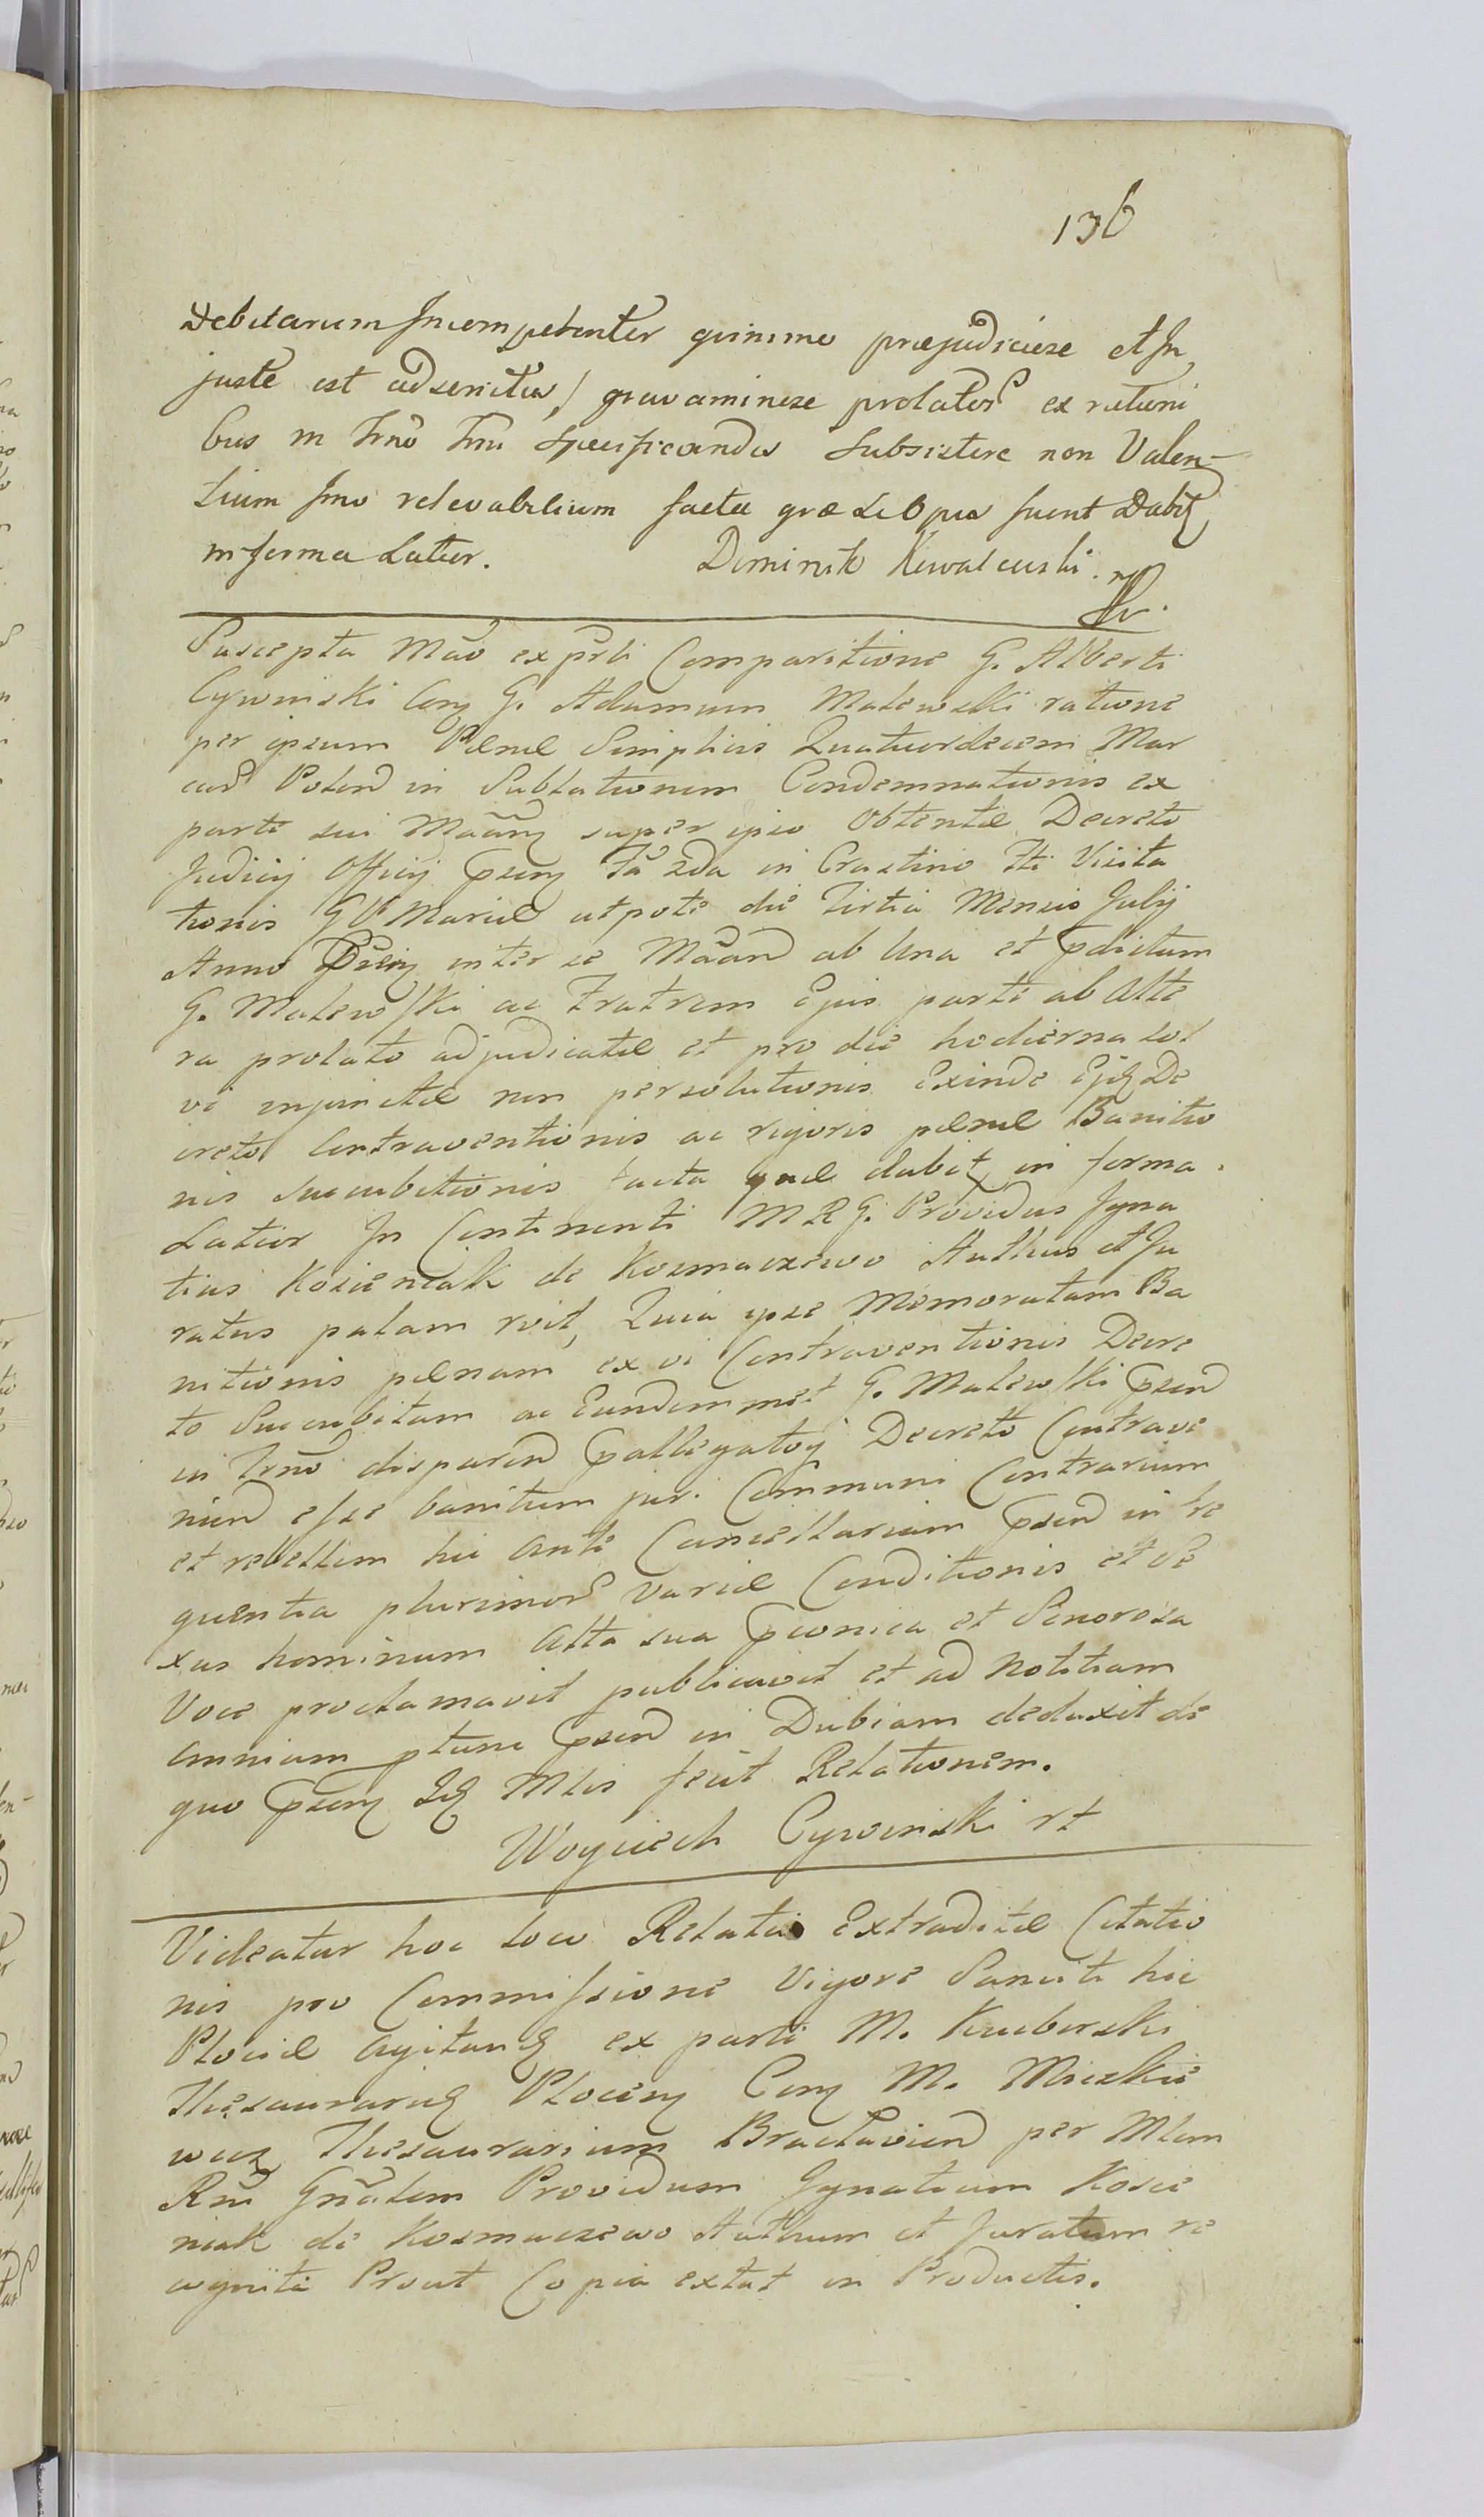 136
Debitarum Incompetenter quinimo præjudiciose et In
juste est adscriptus / gravaminose prolator ex rationi
bus in Trno Tmi Specificandis Subsistere non Valen-
tium Imo relevabilium facta
in forma Latior. Dominik Kowalewski mp
Suscepta Mao ex psti Comparitione G. Alberti
Cywinski Con G. Adamum Malewski ratione
per ipsum Pænæ Simplicis Quatuordecem Mar
car Poten in Sublationem Condemnationis ex
parte sui super ipso Obtentæ Decreto
Judicij Officij psen in Crastino Fti Visita
tionis G V Mariæ utpote die Tertia Mensis Julij
Anno Psen inter se ab Una et pdictum
G. Malewski ac Fratrem Ejus parte ab Alte
ra prolato adjudicatæ et pro die hodierna sol
vi injunctæ non persolutionis Exinde Ejq De
creto Contraventionis ac rigoris pænæ Banitio
nis Succubitionis facta quæ dabit in forma
Latior In Continenti M R G. Providus Igna
tius Kosieniak de Kosmaczewo Authus et Ju
ratus palam rvit, Quia ipse Memoratam Ba
nitionis pænam ex vi Contraventionis Decre
to Succubitam ac Eundemmet G. Malewski psen
in Trno disparen pallegatoj Decreto Contrave
nien esse banitum juri Communi Contrarium
et rebellem hic Ante Cancellariam psen in fre
quentia plurimor Variæ Conditionis et Se
xus hominum Alta sua pconica et Sonorosa
Voce proclamavit publicavit et ad Notitiam
omnium ptunc psen in Dubiam deduxit de
quo psen Mlis fecit Relationem.
Woyciech Cywinski rt
Videatur hoc loco Relatio Extraditæ Citatio
nis pro Commissione Vigore Sanciti hic
Plociæ Agitan ex parte M. Kuciborski
Thesaurarij Plocen Con M. Mieszkie
wicz Thesaurarium Braclavien per Mlem
Rni Gnalem Providum Ignatium Kosie
niak de Kosmaczewo Authum et Juratum re
cognita Prout Copia extat in Productis.